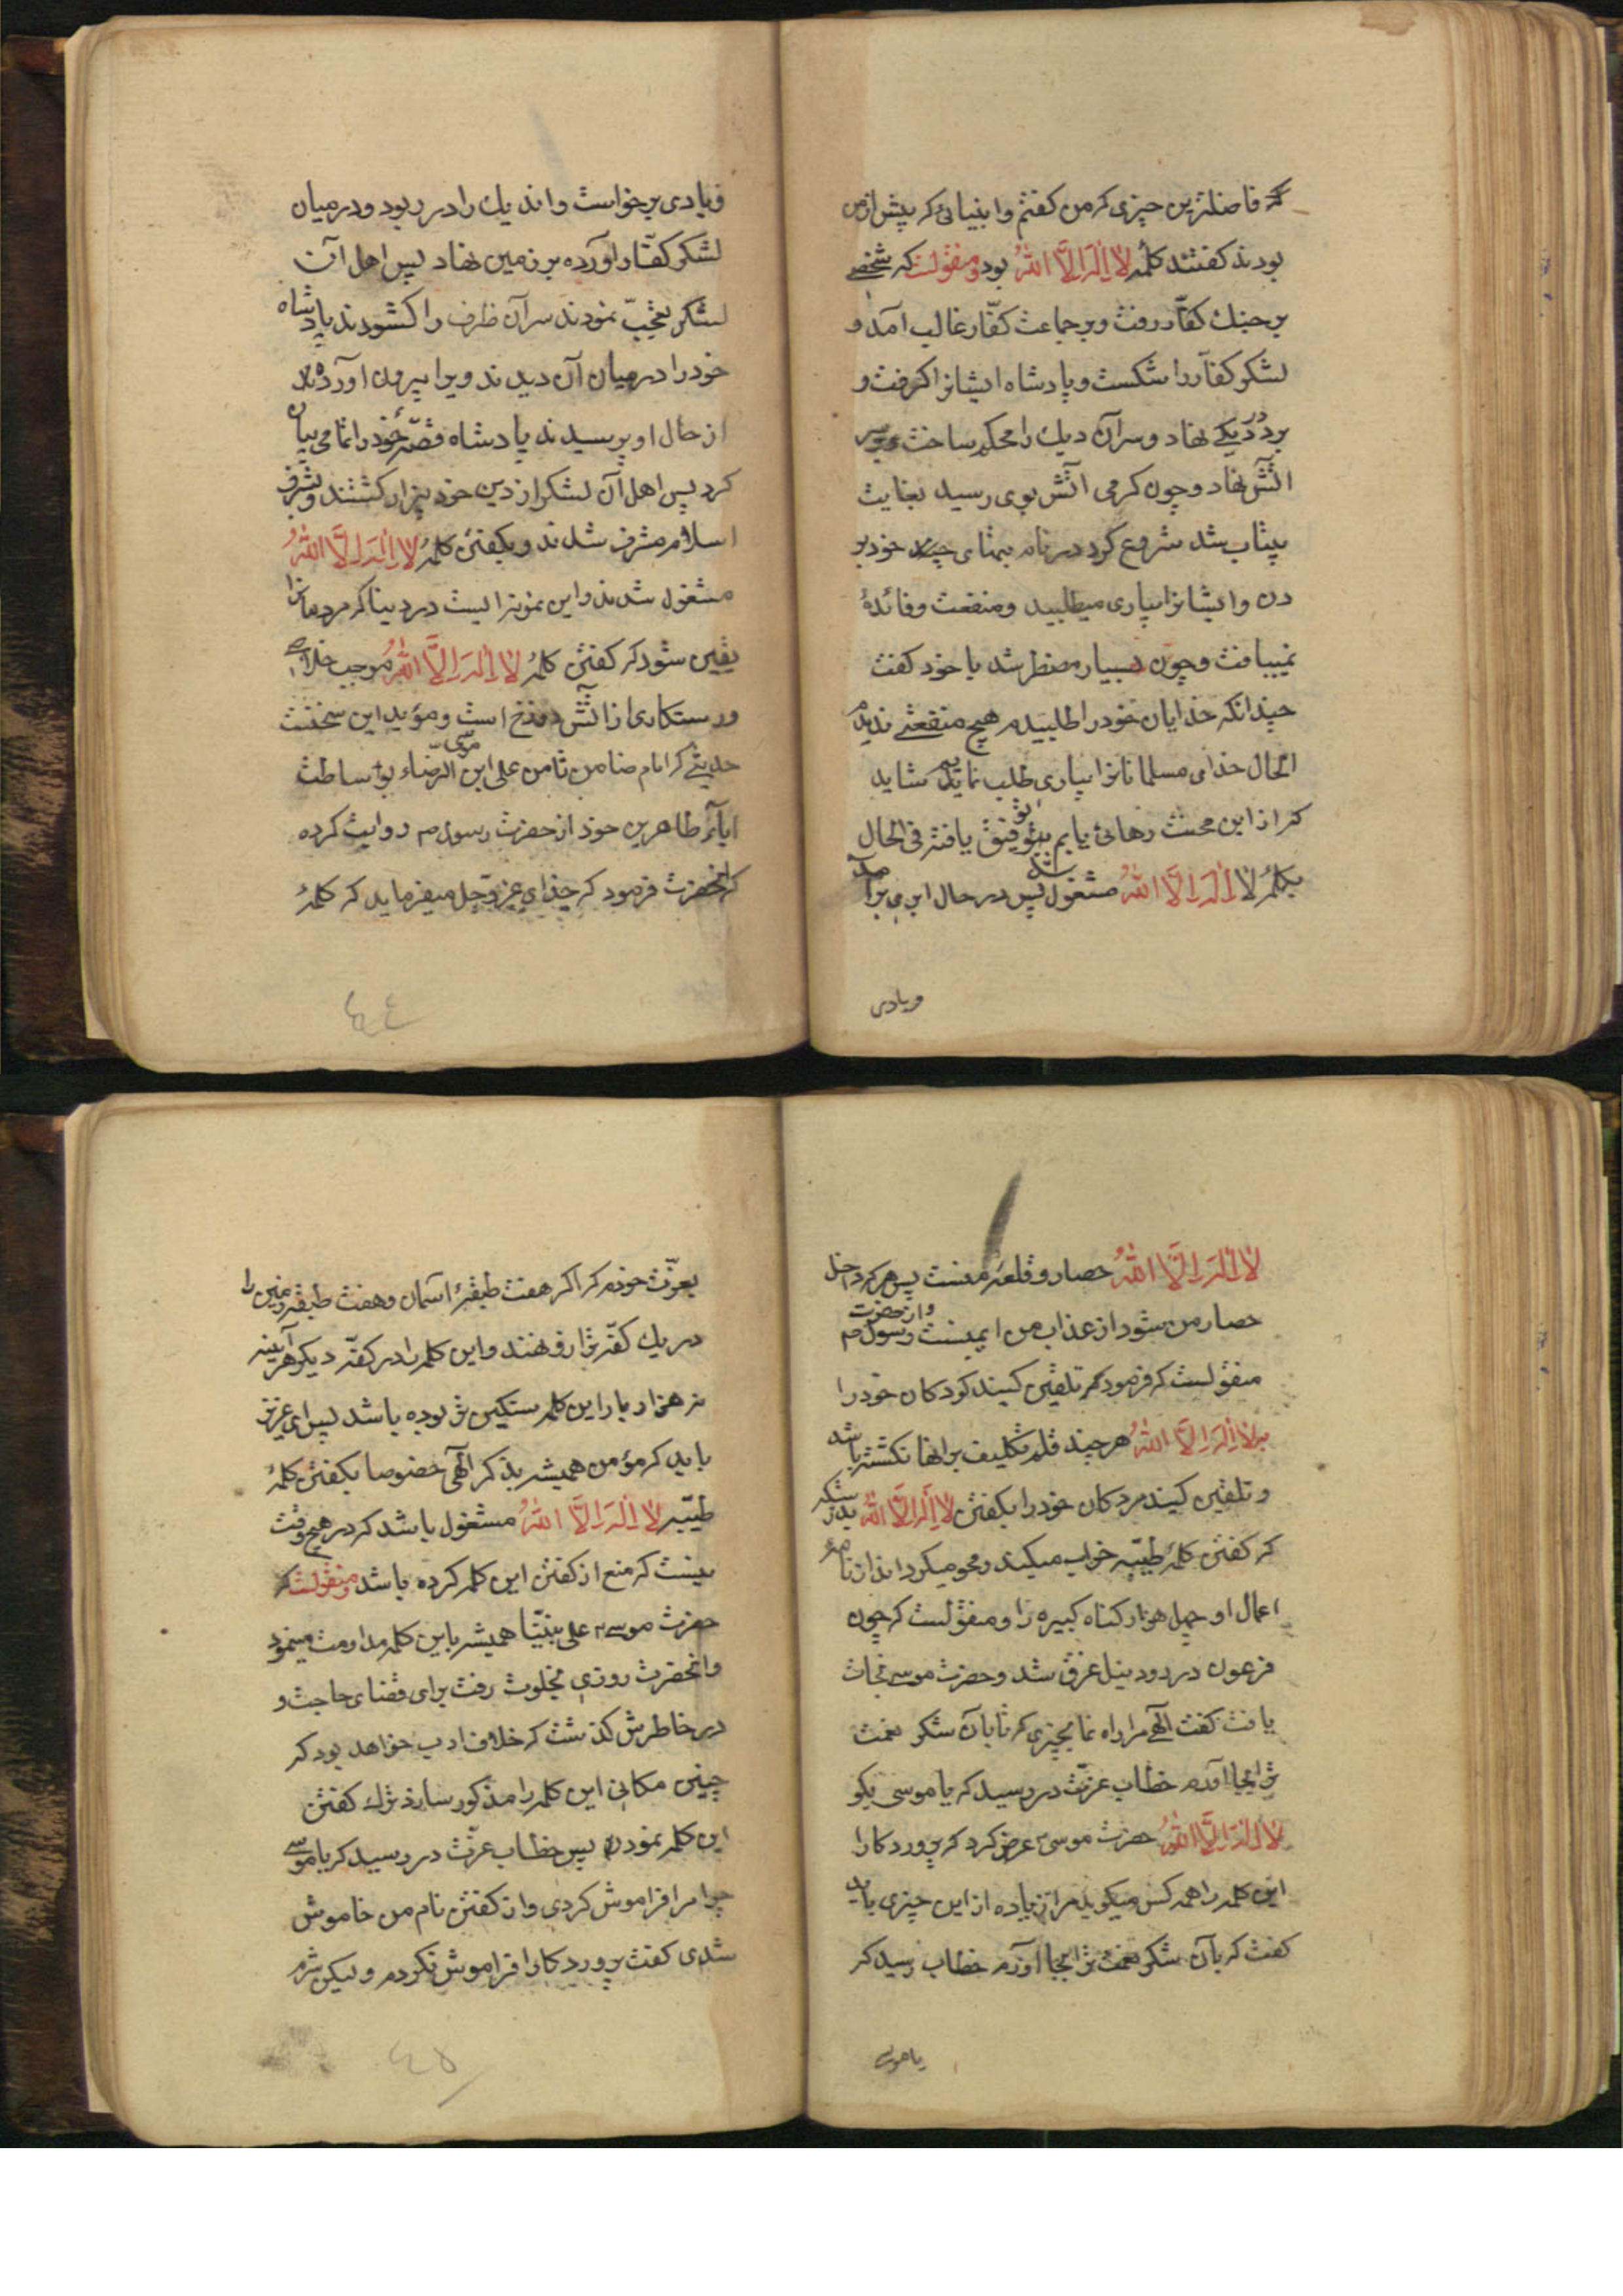 که فاضلترین چیزی که من کفتم وانبیائی که پیش ازمن
بودند کفتند کلمهٔ لا اِلٰهَ اِلَّا اللهُ بود ومنقولست که شخصی
برجنک کفّار رفت وبر جماعت کفّار غالب آمد و
لشکر کفّار را شکست وپادشاه ایشانرا کرفت و
در دیکی نهاد وسر آن دیک را محکم ساخت وبر سر
آتش نهاد وچون کرمی آتش بوی رسید بغایت
بیتاب شد شروع کرد در نام بتهای خود بر
دن وایشانرا بیاری میطلبید ومنفعت وفائدهٔ
نمییافت وچون بسیار مضطر شد با خود کفت
چندانکه خدایان خود را طلبیدم هیچ منفعتی ندیدم
الحال خدای مسلمانانرا بیاری طلب نمایم شاید
که از این محنت رهائی یابم توفیق یافته فی الحال
بکلمهٔ لا اِلٰهَ اِلَّا اللهُ مشغول شد پس در حال ابری برآمد
وبادی
وبادی برخواست وانذیك را در ربود ودر میان
لشکر کفّار آورده بر زمین نهاد پس اهل آن
لشکر تعجّب نمودند سر آن ظرف را کشودند پادشاه
خود را در میان آن دیدند ویرا بیرون آوردند
از حال او پرسیدند پادشاه قصّهٔ خود را تمامی بیان
کرد پس اهل آن لشکر از دین خود بیزار کشتند وبشرف
اسلام مشرف شدند وبکفتن کلمهٔ لا اِلٰهَ اِلَّا اللهُ
مشغول شدند واین نمونه ایست در دنیا که مردمانرا
یقین شود که کفتن کلمهٔ لا اِلٰهَ اِلَّا اللهُ موجب خلاصی
ورستکاری از آتش دوزخ است ومؤید این سخنست
حدیثی که امام ضامن ثامن علی ابن موسی الرّضاء بوساطت
آباء طاهرین خود از حضرت رسول ص روایت کرده
که آنحضرت فرمود که خدای عزّ وجل میفرماید که کلمهٔ
لا اِلٰهَ اِلَّا اللهُ حصار وقلعهٔ منست پس هرکه داخل
حصار من شود از عذاب من ایمنست واز حضرت رسول ص
منقولست که فرمود که تلقین کنید کودکان خود را
بلا اِلٰهَ اِلَّا اللهُ هر چند قلم تکلیف بر انها نکشته باشد
وتلقین کنید مردکان خود را بکفتن لا اِلٰهَ اِلَّا اللهُ بدرستیکه
که کفتن کلمهٔ طیّبه خراب میکند ومحو میکرداند از نامهٔ
اعمال او چهل هزار کناه کبیره را ومنقولست که چون
فرعون در رود نیل غرق شد وحضرت موسی نجات
یافت کفت الٓهی مرا راه نما بچیزی که تا بآن شکر نعمت
ترا بجا آورم خطاب عزّت در رسید که یا موسی بکو
لا اِلٰهَ اِلَّا اللهُ حضرت موسی ع عرض کرد که پروردکارا
این کلمه را همه کس میکوید مرا زیاده از این چیزی باید
کفت که بآن شکر نعمت ترا بجا آورم خطاب رسید که
یا موسی
بعزّت خودم که اکر هفت طبقهٔ آسمان وهفت طبقهٔ زمین را
در یك کفّه ترازو نهند واین کلمه را در کفّه دیکر هر آینه
هزار بار این کلمه سنکین تر بوده باشد پس ای عزیز
باید که مؤمن همیشه بذکر الٓهی خصوصا بکفتن کلمهٔ
طیّبه لا اِلٰهَ اِلَّا اللهُ مشغول باشد که در هیچ وقت
نیست که منع از کفتن این کلمه کرده باشد ومنقولست که
حضرت موسی ع علی نبیّنا همیشه باین کلمه مداومت مینمود
وانحضرت روزی بخلوت رفت برای قضای حاجت و
در خاطرش کذشت که خلاف ادب خواهد بود که
چنین مکانی این کلمه را مذکور سازد ترك کفتن
این کلمه نمود پس خطاب عزّت در رسید که یا موسی
چرا مرا فراموش کردی واز کفتن نام من خاموش
شدی کفت پروردکارا فراموش نکردم ولیکن شرم